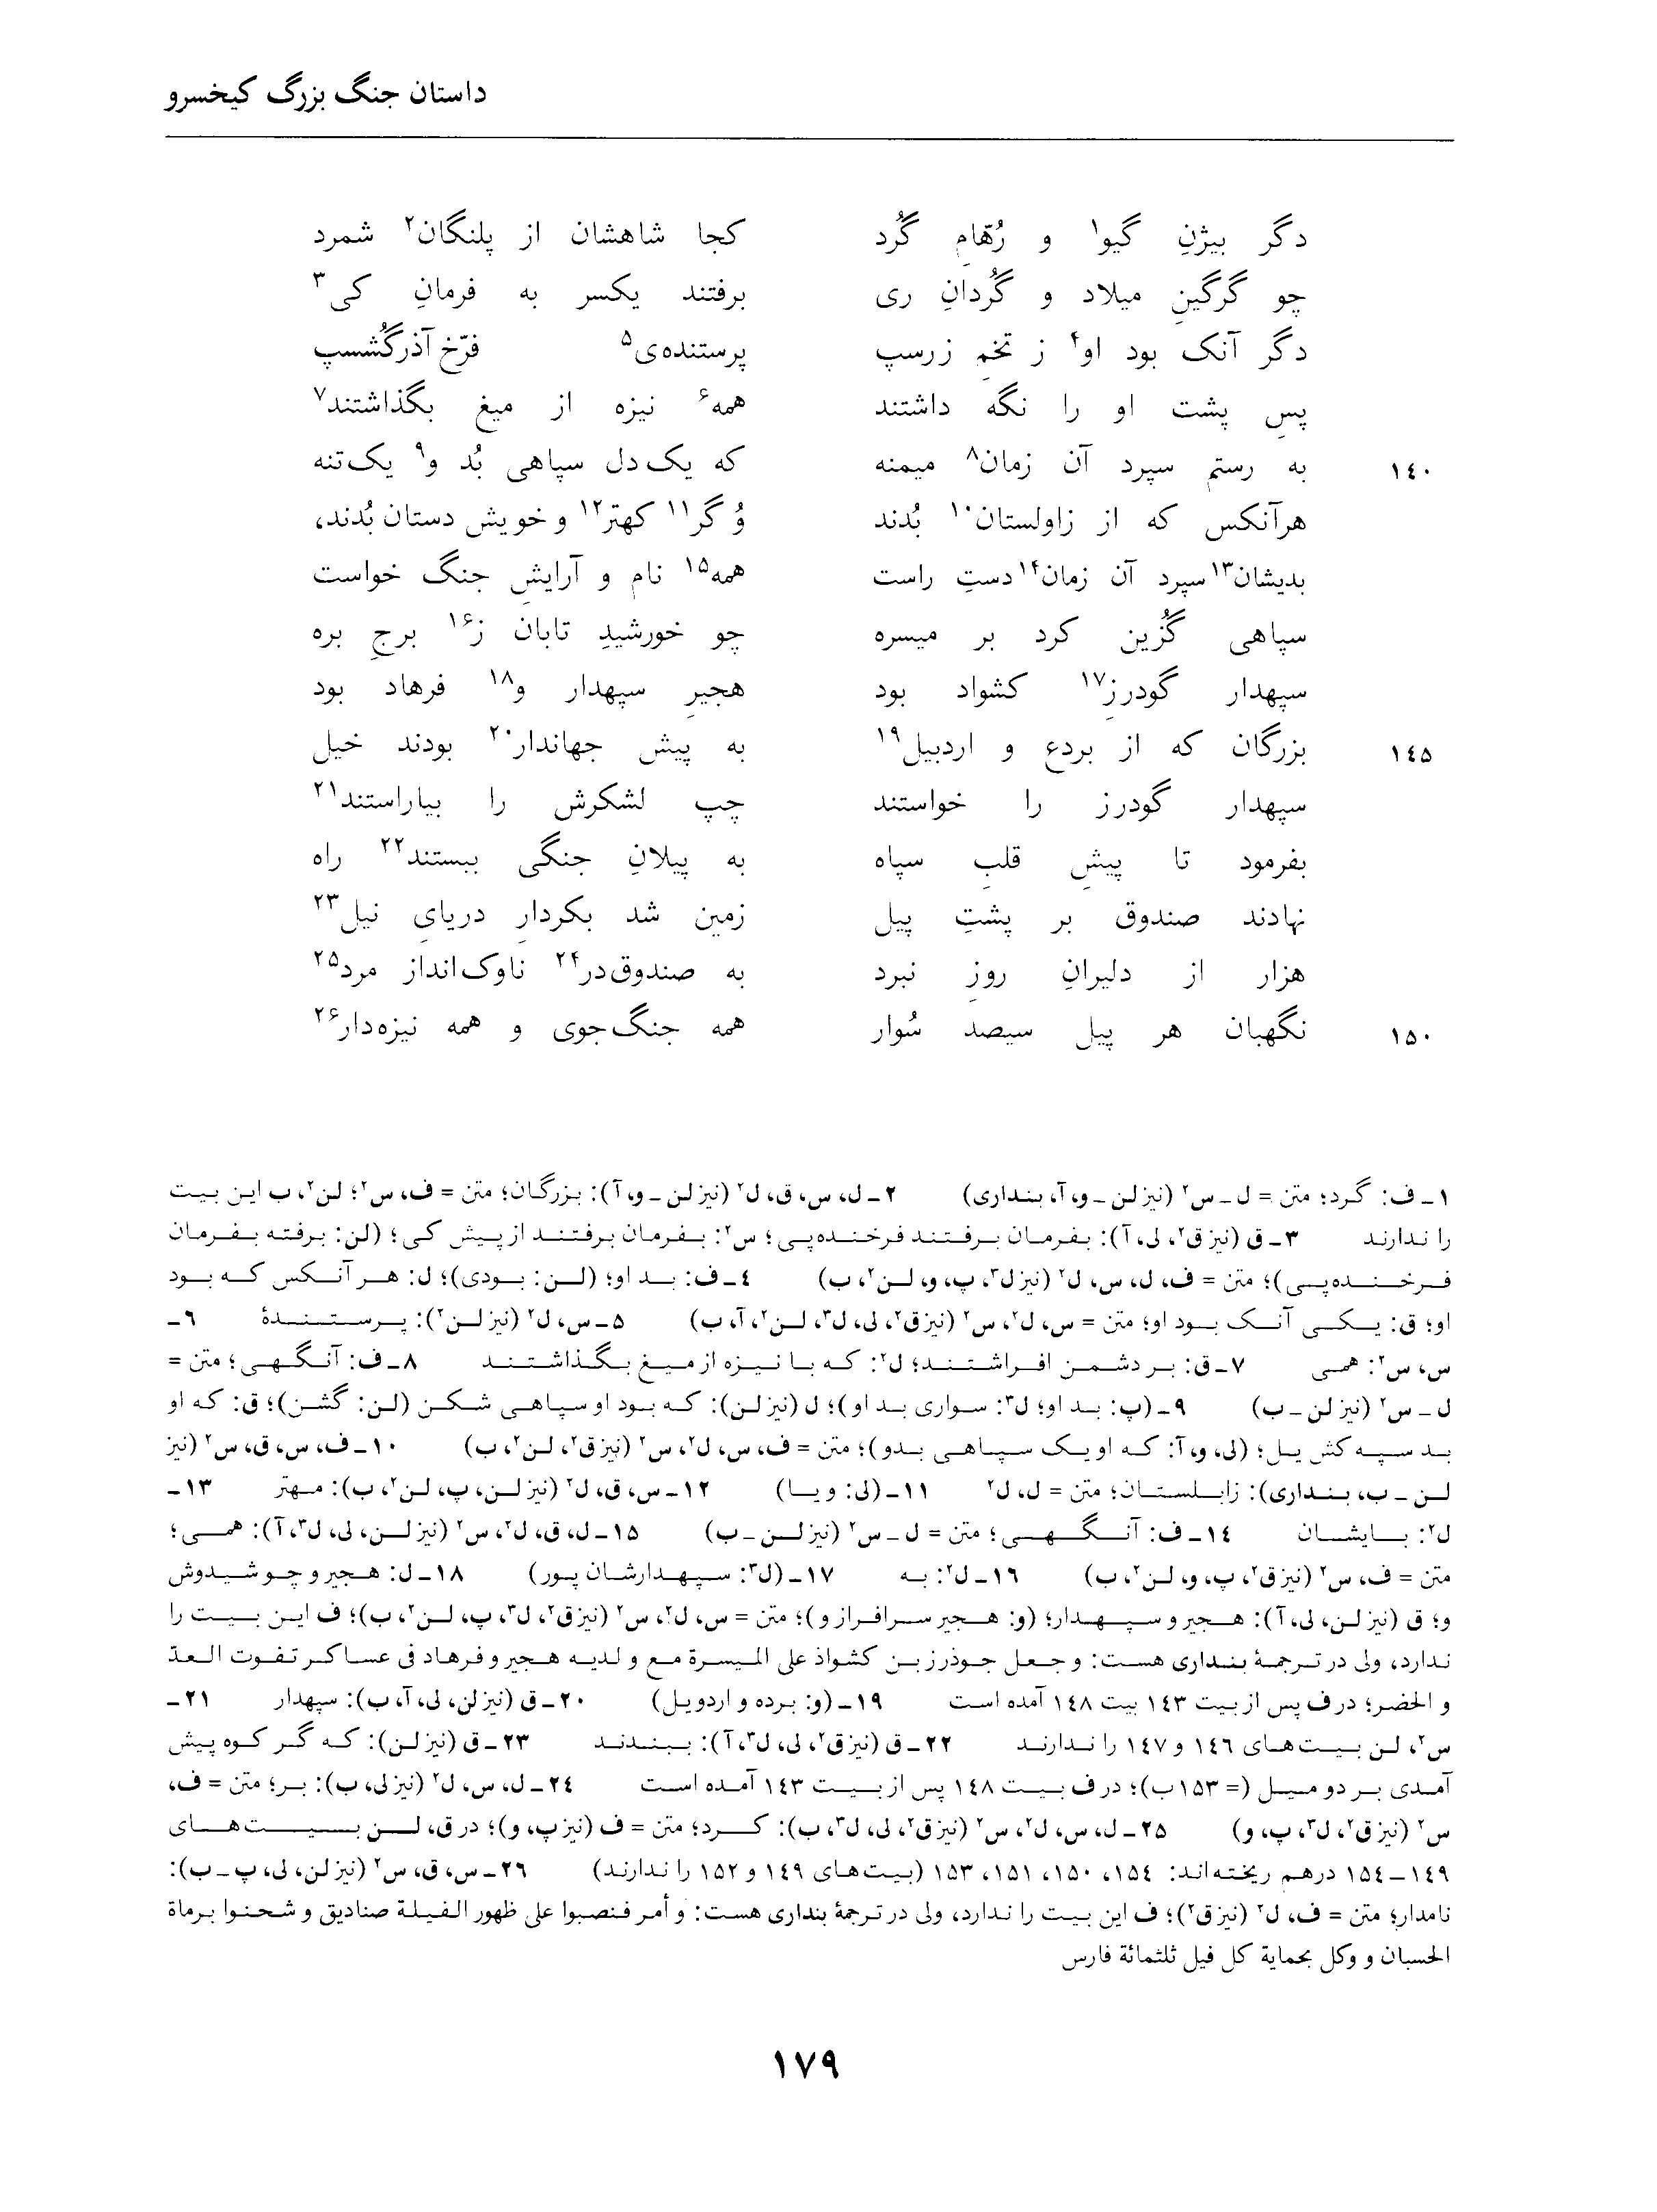 داستان جنگ بزرگ کیخسرو
دگر بیژنِ گیو۱ و رُهّامِ گُرد کجا شاهشان از پلنگان۲ شمرد
چو گرگینِ میلاد و گُردانِ ری برفتند یکسر به فرمانِ کی۳
دگر آنک بود او۴ ز تخمِ زرسپ پرستنده‌ی۵ فرّخ آذرگُشسپ
پسِ پشت او را نگه داشتند همه۶ نیزه از میغ بگذاشتند۷
۱۴۰ به رستم سپرد آن زمان۸ میمنه که یک‌دل سپاهی بُد و۹ یک‌تنه
هرآنکس که از زاولستان۱۰ بُدند وُ گر۱۱ کهتر۱۲ و خویش دستان بُدند،
بدیشان۱۳ سپرد آن زمان۱۴ دستِ راست همه۱۵ نام و آرایشِ جنگ خواست
سپاهی گُزین کرد بر میسره چو خورشیدِ تابان ز۱۶ برجِ بره
سپهدار گودرزِ۱۷ کشواد بود هجیرِ سپهدار و۱۸ فرهاد بود
۱۴۵ بزرگان که از بردع و اردبیل۱۹ به پیش جهاندار۲۰ بودند خیل
سپهدار گودرز را خواستند چپ لشکرش را بیاراستند۲۱
بفرمود تا پیشِ قلبِ سپاه به پیلانِ جنگی ببستند۲۲ راه
نهادند صندوق بر پشتِ پیل زمین شد بکردارِ دریایِ نیل۲۳
هزار از دلیرانِ روزِ نبرد به صندوق‌در۲۴ ناوک‌انداز مرد۲۵
۱۵۰ نگهبان هر پیل سیصد سُوار همه جنگ‌جوی و همه نیزه‌دار۲۶
۱ـ ف: گرد؛ متن = ل ـ س۲ (نیز لن ـ و، آ، بنداری) ۲ـ ل، س، ق، ل۲ (نیز لن ـ و، آ): بزرگان؛ متن = ف، س۲؛ لن۲، ب این بیت
را ندارند ۳ـ ق (نیز ق۲، لی، آ): بفرمان برفتند فرخنده‌پی؛ س۲: بفرمان برفتند از پیش کی؛ (لن: برفته بفرمان
فرخنده‌پی)؛ متن = ف، ل، س، ل۲ (نیز ل۳، پ، و، لن۲، ب) ٤ـ ف: بد او؛ (لن: بودی)؛ ل: هر آنکس که بود
او؛ ق: یکی آنک بود او؛ متن = س، ل۲، س۲ (نیز ق۲، لی، ل۳، لن۲، آ، ب) ۵ـ س، ل۲ (نیز لن۲): پرستندهٔ ۶ـ
س، س۲: همی ۷ـ ق: بر دشمن افراشتند؛ ل۲: که با نیزه از میغ بگذاشتند ۸ـ ف: آنگهی؛ متن =
ل ـ س۲ (نیز لن ـ ب) ۹ـ (پ: بد او؛ ل۳: سواری بد او)؛ ل (نیز لن): که بود او سپاهی شکن (لن: گشن)؛ ق: که او
بد سپه کش یل؛ (لی، و، آ: که او یک سپاهی بدو)؛ متن = ف، س، ل۲، س۲ (نیز ق۲، لن۲، ب) ۱۰ـ ف، س، ق، س۲ (نیز
لن ـ ب، بنداری): زابلستان؛ متن = ل، ل۲ ۱۱ـ (لی: و یا) ۱۲ـ س، ق، ل۲ (نیز لن، پ، لن۲، ب): مهتر ۱۳ـ
ل۲: بایشان ۱٤ـ ف: آنگهی؛ متن = ل ـ س۲ (نیز لن ـ ب) ۱۵ـ ل، ق، ل۲، س۲ (نیز لن، لی، ل۳، آ): همی؛
متن = ف، س۲ (نیز ق۲، پ، و، لن۲، ب) ۱۶ـ ل۲: به ۱۷ـ (ل۳: سپهدارشان پور) ۱۸ـ ل: هجیر و چو شیدوش
و؛ ق (نیز لن، لی، آ): هجیر و سپهدار؛ (و: هجیر سرافراز و)؛ متن = س، ل۲، س۲ (نیز ق۲، ل۳، پ، لن۲، ب)؛ ف این بیت را
ندارد، ولی در ترجمهٔ بنداری هست: و جعل جوذرز بن کشواذ علی المیسرة مع و لدیه هجیر و فرهاد فی عساکر تفوت العدّ
و الحضر؛ در ف پس از بیت ۱٤۳ بیت ۱٤۸ آمده است ۱۹ـ (و: برده و اردویل) ۲۰ـ ق (نیز لن، لی، آ، ب): سپهدار ۲۱ـ
س۲، لن بیت‌های ۱٤۶ و ۱٤۷ را ندارند ۲۲ـ ق (نیز ق۲، لی، ل۳، آ): ببندند ۲۳ـ ق (نیز لن): که گر کوه پیش
آمدی بر دو میل (= ۱۵۳ب)؛ در ف بیت ۱٤۸ پس از بیت ۱٤۳ آمده است ۲٤ـ ل، س، ل۲ (نیز لی، ب): بر؛ متن = ف،
س۲ (نیز ق۲، ل۳، پ، و) ۲۵ـ ل، س، ل۲، س۲ (نیز ق۲، لی، ل۳، ب): کرد؛ متن = ف (نیز پ، و)؛ در ق، لن بیت‌های
۱٤۹ـ۱۵٤ درهم ریخته‌اند: ۱۵٤، ۱۵۰، ۱۵۱، ۱۵۳ (بیت‌های ۱٤۹ و ۱۵۲ را ندارند) ۲۶ـ س، ق، س۲ (نیز لن، لی، پ ـ ب):
نامدار؛ متن = ف، ل۲ (نیز ق۲)؛ ف این بیت را ندارد، ولی در ترجمهٔ بنداری هست: و أمر فنصبوا علی ظهور الفیلة صنادیق و شحنوا برماة
الحسبان و وکل بحمایة کل فیل ثلثمائة فارس
۱۷۹